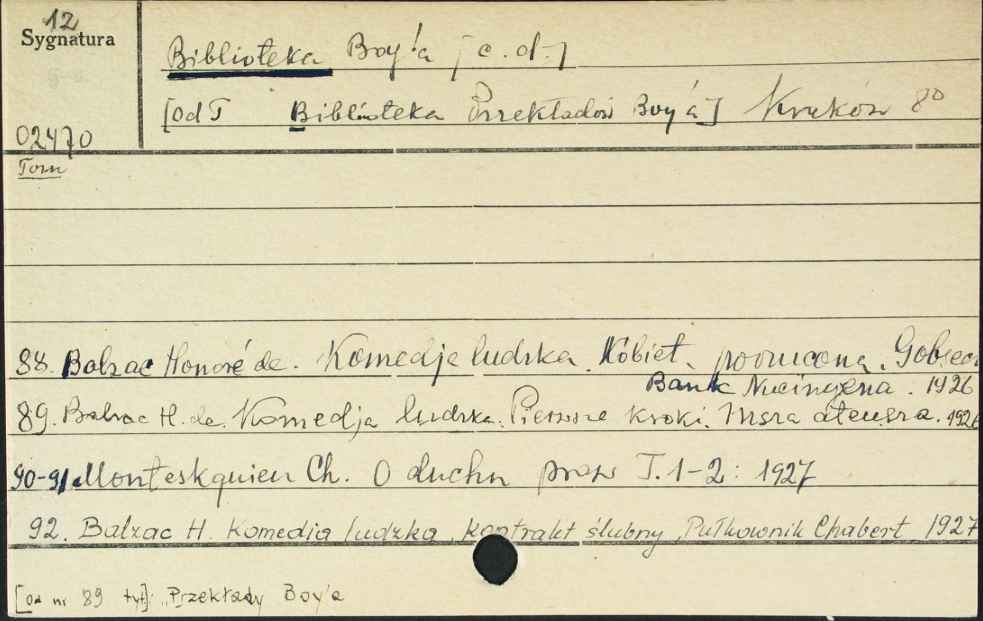 12
Sygnatura
Biblioteka Boy'a /c.d./
[od T Biblioteka Przekładów Boy'a] Kraków 8°
02470
Tom
88. Balzac Honoré de. Komedja ludzka. Kobieta porzucona. Gobseck
Bank Nucingena. 1926
89. Balzac H. de. Komedja ludzka. Pierwsze kroki. Msza ateusza. 1926
90-91 Monteskquieu Ch. O duchu praw T. 1-2: 1927
92. Balzac H. Komedia ludzka, kontrakt ślubny, Pułkownik Chabert 1927
[od nr 89 tyt]: "Przekłady Boy'a